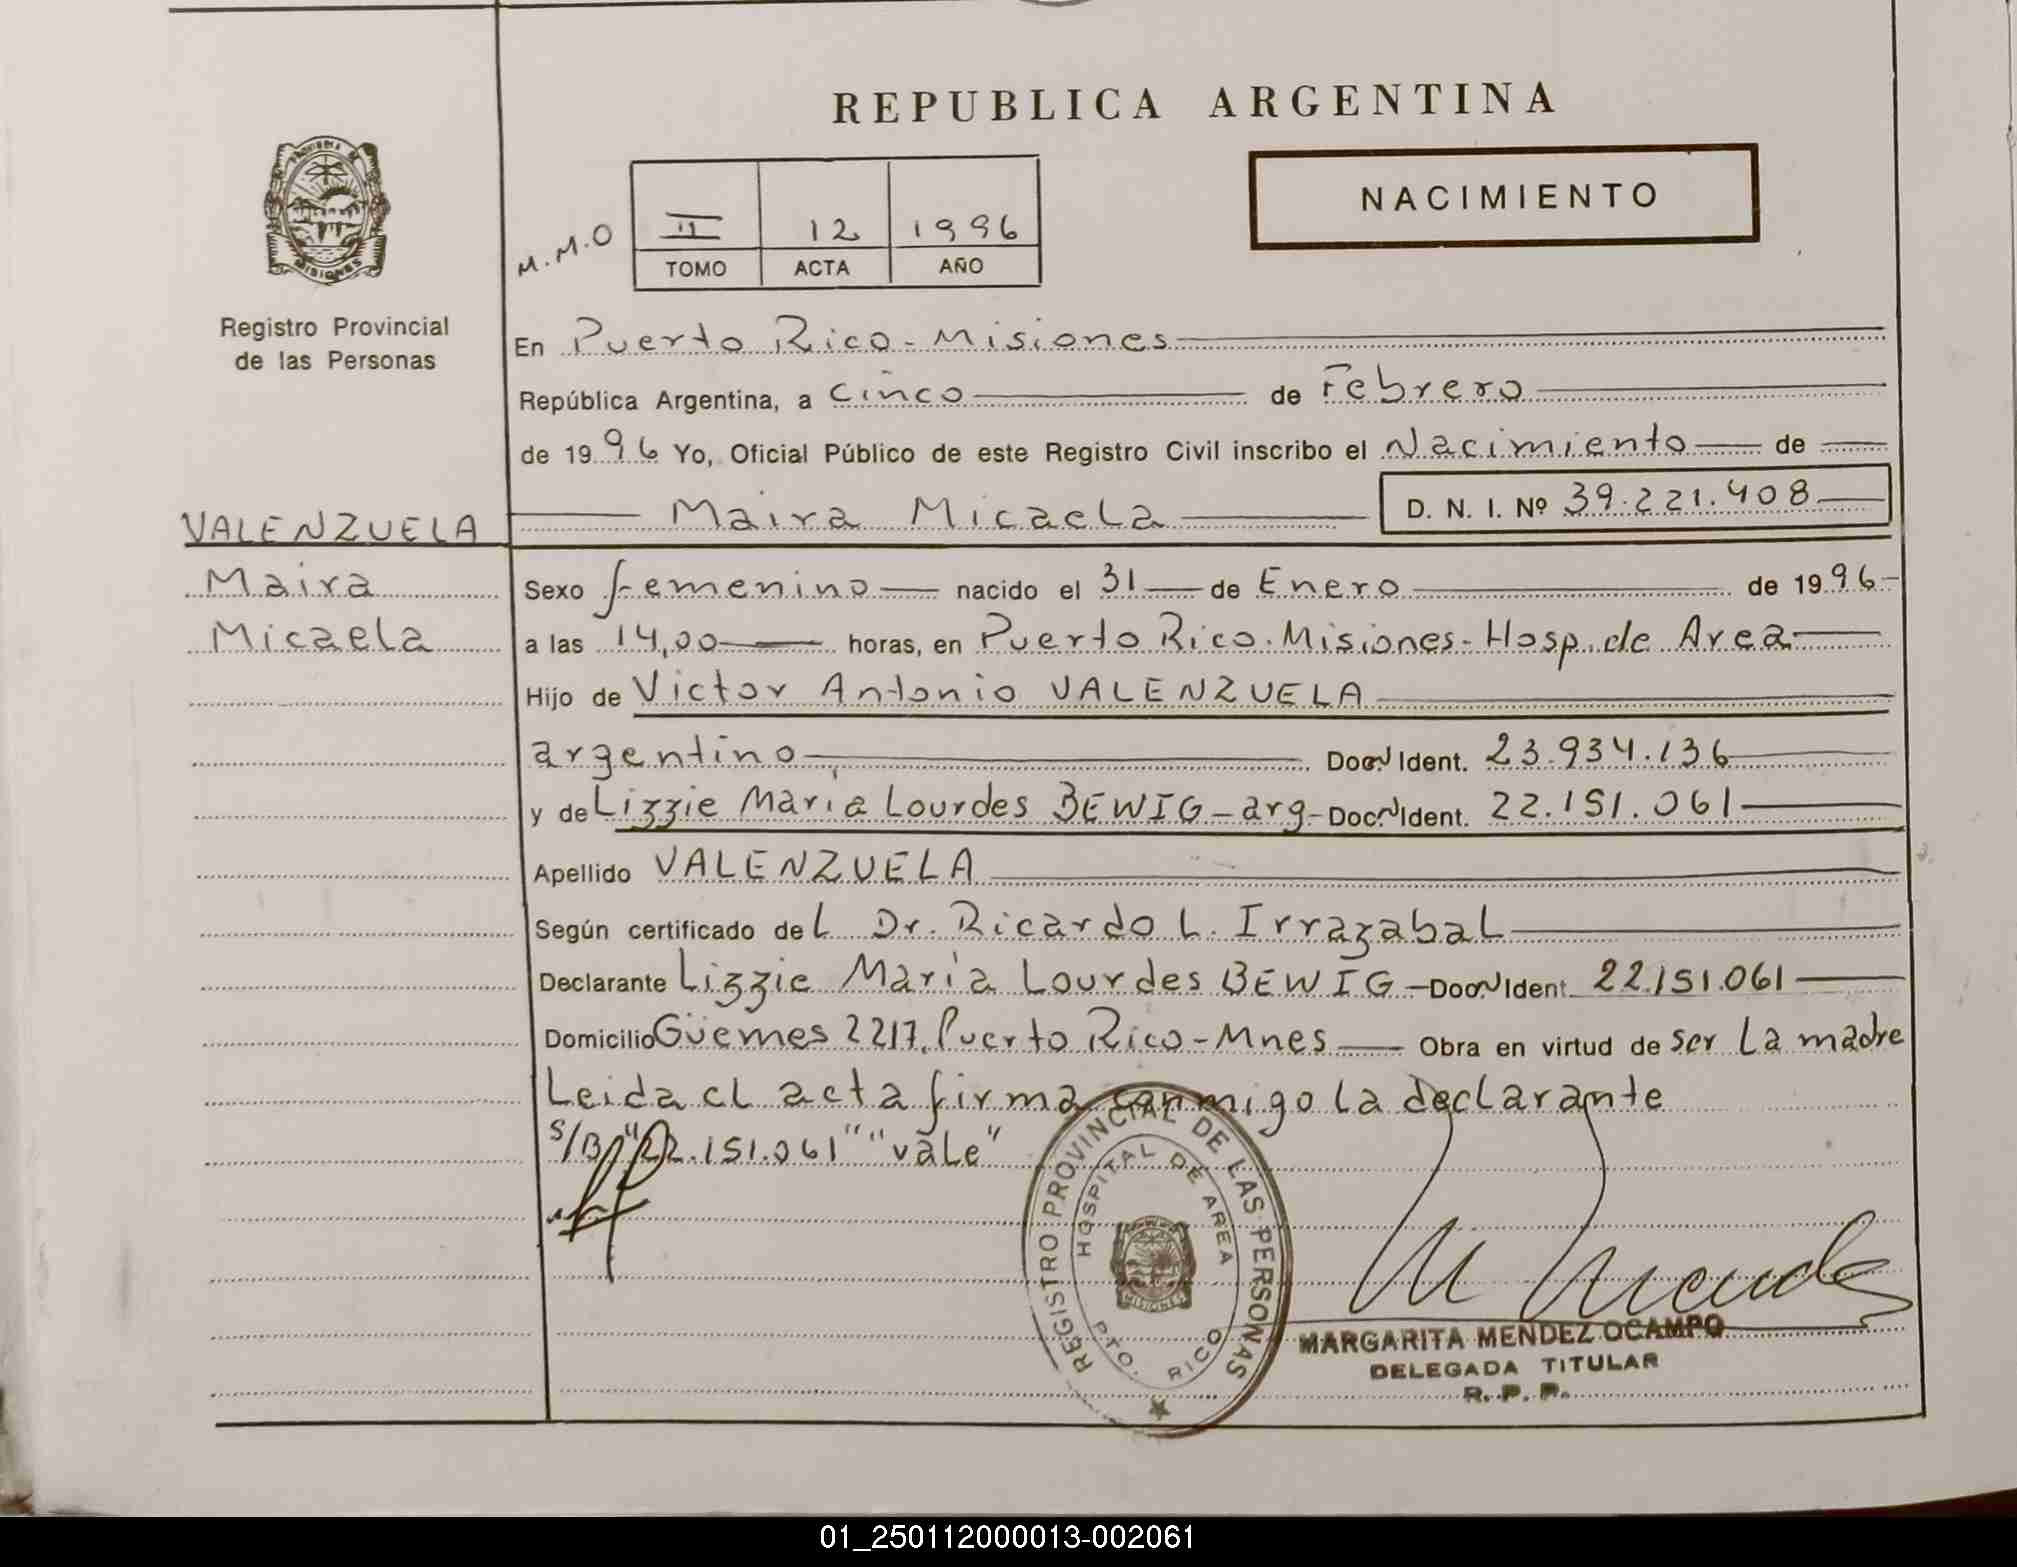 REPUBLICA ARGENTINA
NACIMIENTO
PROVINCIA DE
MISIONES
Registro Provincial
de las Personas
M.M.O
II 12 1996
TOMO ACTA AÑO
En Puerto Rico - Misiones
República Argentina, a cinco de Febrero
de 1996 Yo, Oficial Público de este Registro Civil inscribo el Nacimiento de
Maira Micaela D. N. I. Nº 39.221.408
VALENZUELA
Maira
Micaela
Sexo femenino nacido el 31 de Enero de 1996
a las 14,00 horas, en Puerto Rico. Misiones - Hosp. de Area
Hijo de Victor Antonio VALENZUELA
argentino, Doc. Ident. 23.934.136
y de Lizzie María Lourdes BEWIG - arg - Doc. Ident. 22.151.061
Apellido VALENZUELA
Según certificado del Dr. Ricardo L. Irrazabal
Declarante Lizzie María Lourdes BEWIG - Doc. Ident. 22.151.061
Domicilio Güemes 2217. Puerto Rico - Mnes Obra en virtud de ser la madre
Leida el acta firma conmigo la declarante
s/B "22.151.061" "vale"
REGISTRO PROVINCIAL DE LAS PERSONAS
HOSPITAL DE AREA
MISIONES
PTO. RICO
M Mendez
MARGARITA MENDEZ OCAMPO
DELEGADA TITULAR
R. P. P.
01_250112000013-002061